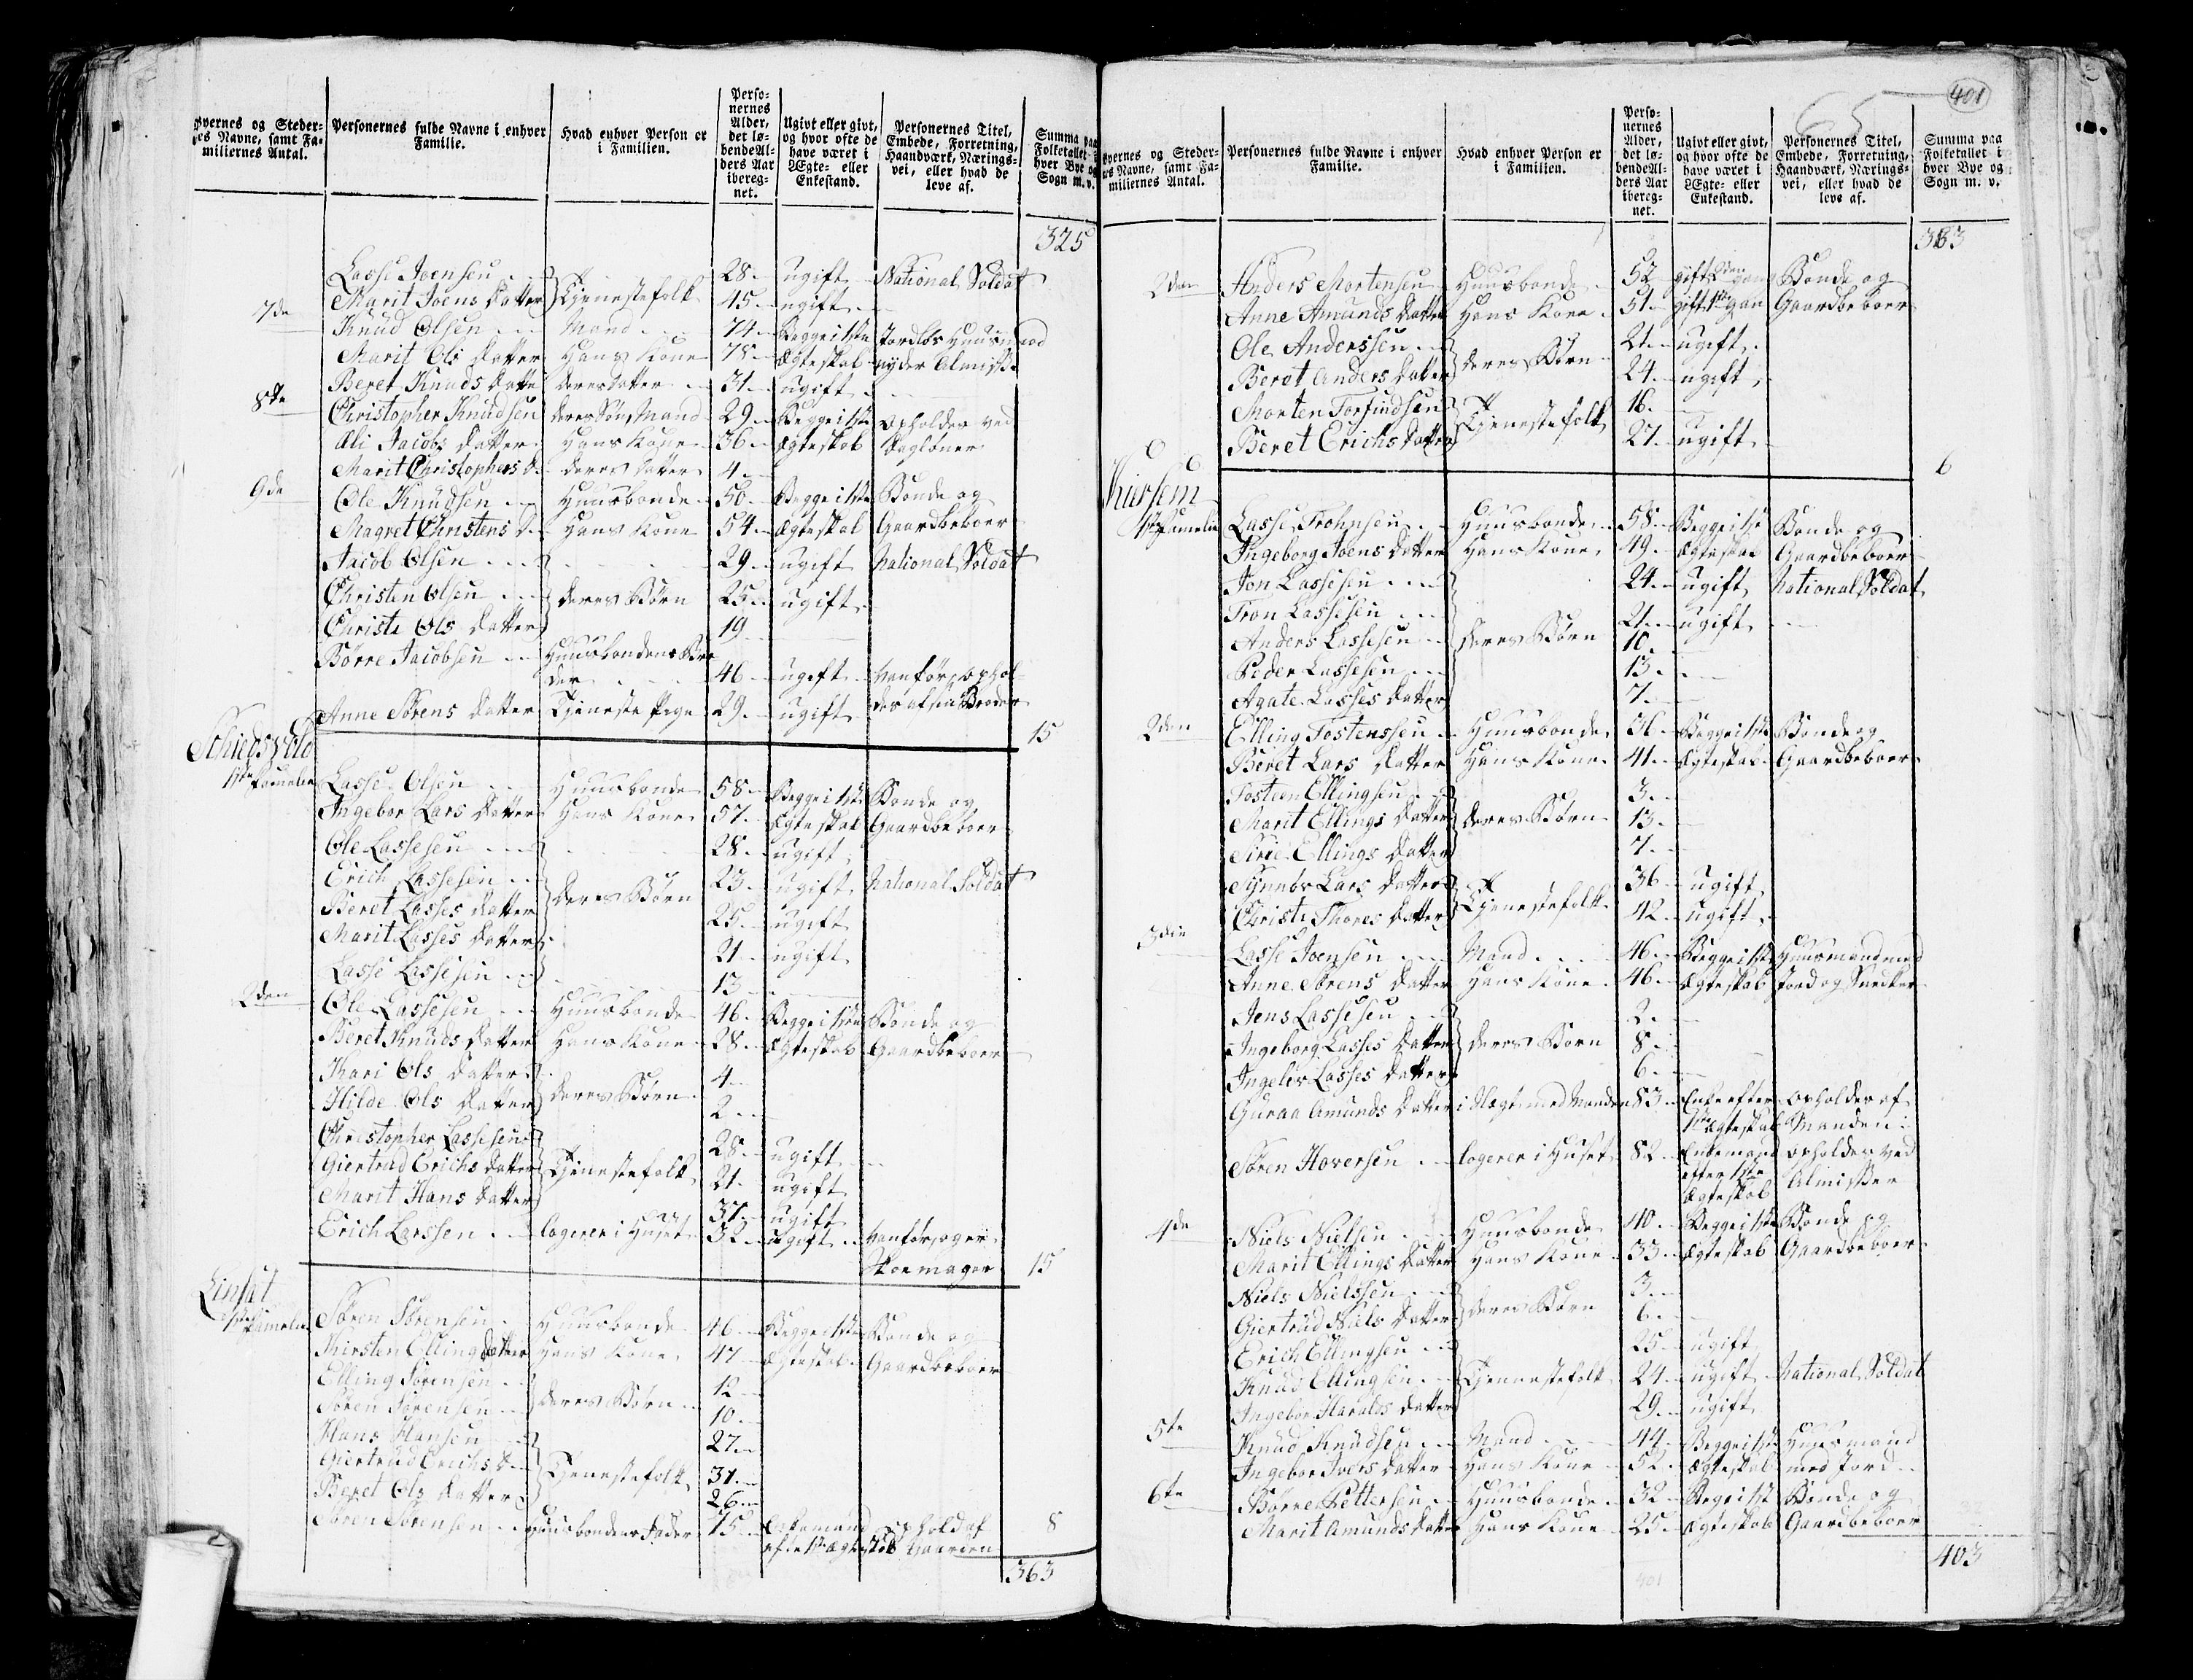 Personernes fulde Navne i enhver Familie.
Hvad enhver Person er i Familien.
Personernes Alder, det løbende Alders Aar iberegnet.
Ugivt eller givt, og hvor ofte de have været i Ægte- eller Enkestand.
Personernes Titel, Embede, Forretning, Haandværk, Næringsvei, eller hvad de leve af.
Summa paa Folketallet i hver Bye og Sogn m. v.
325
Lasse Joensen 28. ugift National Soldat
Marit Joens Datter Tjenestefolk 45. ugift
7de Knud Olsen Mand 74. Begge i 1ste Jordløs Huusmand
Marit Ols Datter Hans Kone 78. Ægteskab nyder Almisse
Beret Knuds Datter deres Datter 31. ugift
8de Christopher Knudsen deres Søn, Mand 29. Begge i 1ste opholder ved
Ali Jacobs Datter Hans Kone 36. Ægteskab Dagløner
Marit Christophers D. deres Datter 4.
9de Ole Knudsen Huusbonde 50. Begge i 1ste Bonde og
Magret Christens D. Hans Kone 54. Ægteskab Gaardbeboer
Jacob Olsen 29. ugift National Soldat
Christen Olsen deres Børn 25. ugift
Christi Ols Datter 19.
Børre Jacobsen Huusbondens Bro
der 46 ugift vanfør, ophol
des af sin Broder
Anne Sørens Datter Tjeneste Pige 29. ugift
15
Schiedsvold
1ste Familie Lasse Olsen Huusbonde 58. Begge i 1ste Bonde og
Ingebor Lars Datter Hans Kone 57. Ægteskab Gaardbeboer
Ole Lassesen 28. ugift
Erich Lassesen 23. ugift National Soldat
Beret Lasses Datter deres Børn 25. ugift
Marit Lasses Datter 21. ugift
Lasse Lassesen 13.
2den Ole Lassesen Huusbonde 46. Begge i 1ste Bonde og
Beret Knuds Datter Hans Kone 28. Ægteskab Gaardbeboer
Kari Ols Datter 4.
Hilde Ols Datter deres Børn 2.
Christopher Lassesen 28. ugift
Giertrud Erichs Datter Tjenestefolk 21. ugift
Marit Hans Datter 37. ugift
Erich Larssen logerer i Huset 32. ugift vanfør, og er
Skoemager
15
Linset
1ste Familie Søren Sørensen Huusbonde 46. Begge i 1ste Bonde og
Kirsten Elling Datter Hans Kone 47. Ægteskab Gaardbeboer
Elling Sørensen 12
Søren Sørensen deres Børn 10
Hans Hansen 27
Giertrud Erichs D. Tjenestefolk 31.
Beret Ols Datter 26
Søren Sørensen Huusbondens Fader 75 Enkemand ophold af
efter 1ste Ægteskab Gaarden
8
363
401
65
Personernes fulde Navne i enhver Familie.
Hvad enhver Person er i Familien.
Personernes Alder, det løbende Alders Aar iberegnet.
Ugivt eller givt, og hvor ofte de have været i Ægte- eller Enkestand.
Personernes Titel, Embede, Forretning, Haandværk, Næringsvei, eller hvad de leve af.
Summa paa Folketallet i hver Bye og Sogn m. v.
363
2den Anders Mortensen Huusbonde 52 gift Bonde og
Anne Amunds Datter Hans Kone 51 gift 1ste gan Gaardbeboer
Ole Anderssen 21. ugift
Beret Anders Datter deres Børn 24. ugift
Morten Torfindsen 16.
Beret Erichs Datter Tjenestefolk 27. ugift
6
1ste Familie Lasse Trohnsen Huusbonde 58. Begge i 1ste Bonde og
Ingeborg Joens Datter Hans Kone 49. Ægteskab Gaardbeboer
Jon Lassesen 24. ugift National Soldat
Tron Lassesen 21. ugift
Anders Lassesen deres Børn 10.
Peder Lassesen 13.
Agate Lasses Datter 7.
2den Elling Tostenssen Huusbonde 36. Begge i 1ste Bonde og
Beret Lars Datter Hans Kone 41. Ægteskab Gaardbeboer
Tosten Ellingsen 3.
Marit Ellings Datter deres Børn 13.
Sirie Ellings Datter 7.
Synnbr Lars Datter 36. ugift
Christi Thores Datter Tjenestefolk 42. ugift
3die Lasse Joensen Mand 46. Begge i 1ste Huusmand med
Anne Sørens Datter Hans Kone 46. Ægteskab Jord og Snedker
Jens Lassesen 2.
Ingeborg Lasses Datter deres Børn 8.
Ingelev Lasses Datter 6.
Guraa Amunds Datter i Slægt med Manden 83. Enke efter opholdes af
1ste Ægteskab Manden
Søren Hoversen logerer i Huset 82. Enkemand opholdes ved
efter 1ste Almisse
Ægteskab
4de Niels Nielsen Huusbonde 40. Begge i 1ste Bonde og
Marit Ellings Datter Hans Kone 33. Ægteskab Gaardbeboer
Niels Nielssen 3.
Giertrud Niels Datter deres Børn 6.
Erich Ellingsen 25. ugift
Knud Ellingsen Tjenestefolk 24. ugift National Soldat
Ingebor Haralds Datter 29. ugift
5te Knud Knudsen Mand 44. Begge i 1ste Huusmand
Ingebor Ivers Datter Hans Kone 52. Ægteskab med Jord
6te Børre Pettersen Huusbonde 32. Begge i 1ste Bonde og
Marit Amunds Datter Hans Kone 25. Ægteskab Gaardbeboer
403
401